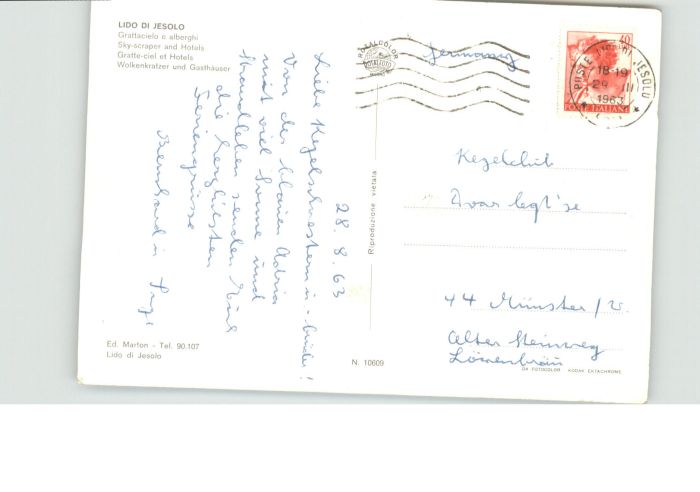 LIDO DI JESOLO
Grattacielo e alberghi
Sky-scraper and Hotels
Gratte-ciel et Hotels
Wolkenkratzer und Gasthäuser
28. 8. 63
Liebe Kegelschwestern u. -brüder!
Von der blauen Adria
mit viel Sonne und
Strandleben senden Euch
die herzlichsten
Feriengrüsse
Bernhard u. Inge
Ed. Marton - Tel. 90.107
Lido di Jesolo
Riproduzione vietata
N. 10609
ROTALCOLOR
ROTALFOTO
Germany
40
POSTE ITALIANE
JESOLO
18-19
1963
Kegelclub
Twar legt'se
44 Münster / W.
Alter Steinweg
Löwenbräu
DA FOTOCOLOR KODAK EKTACHROME